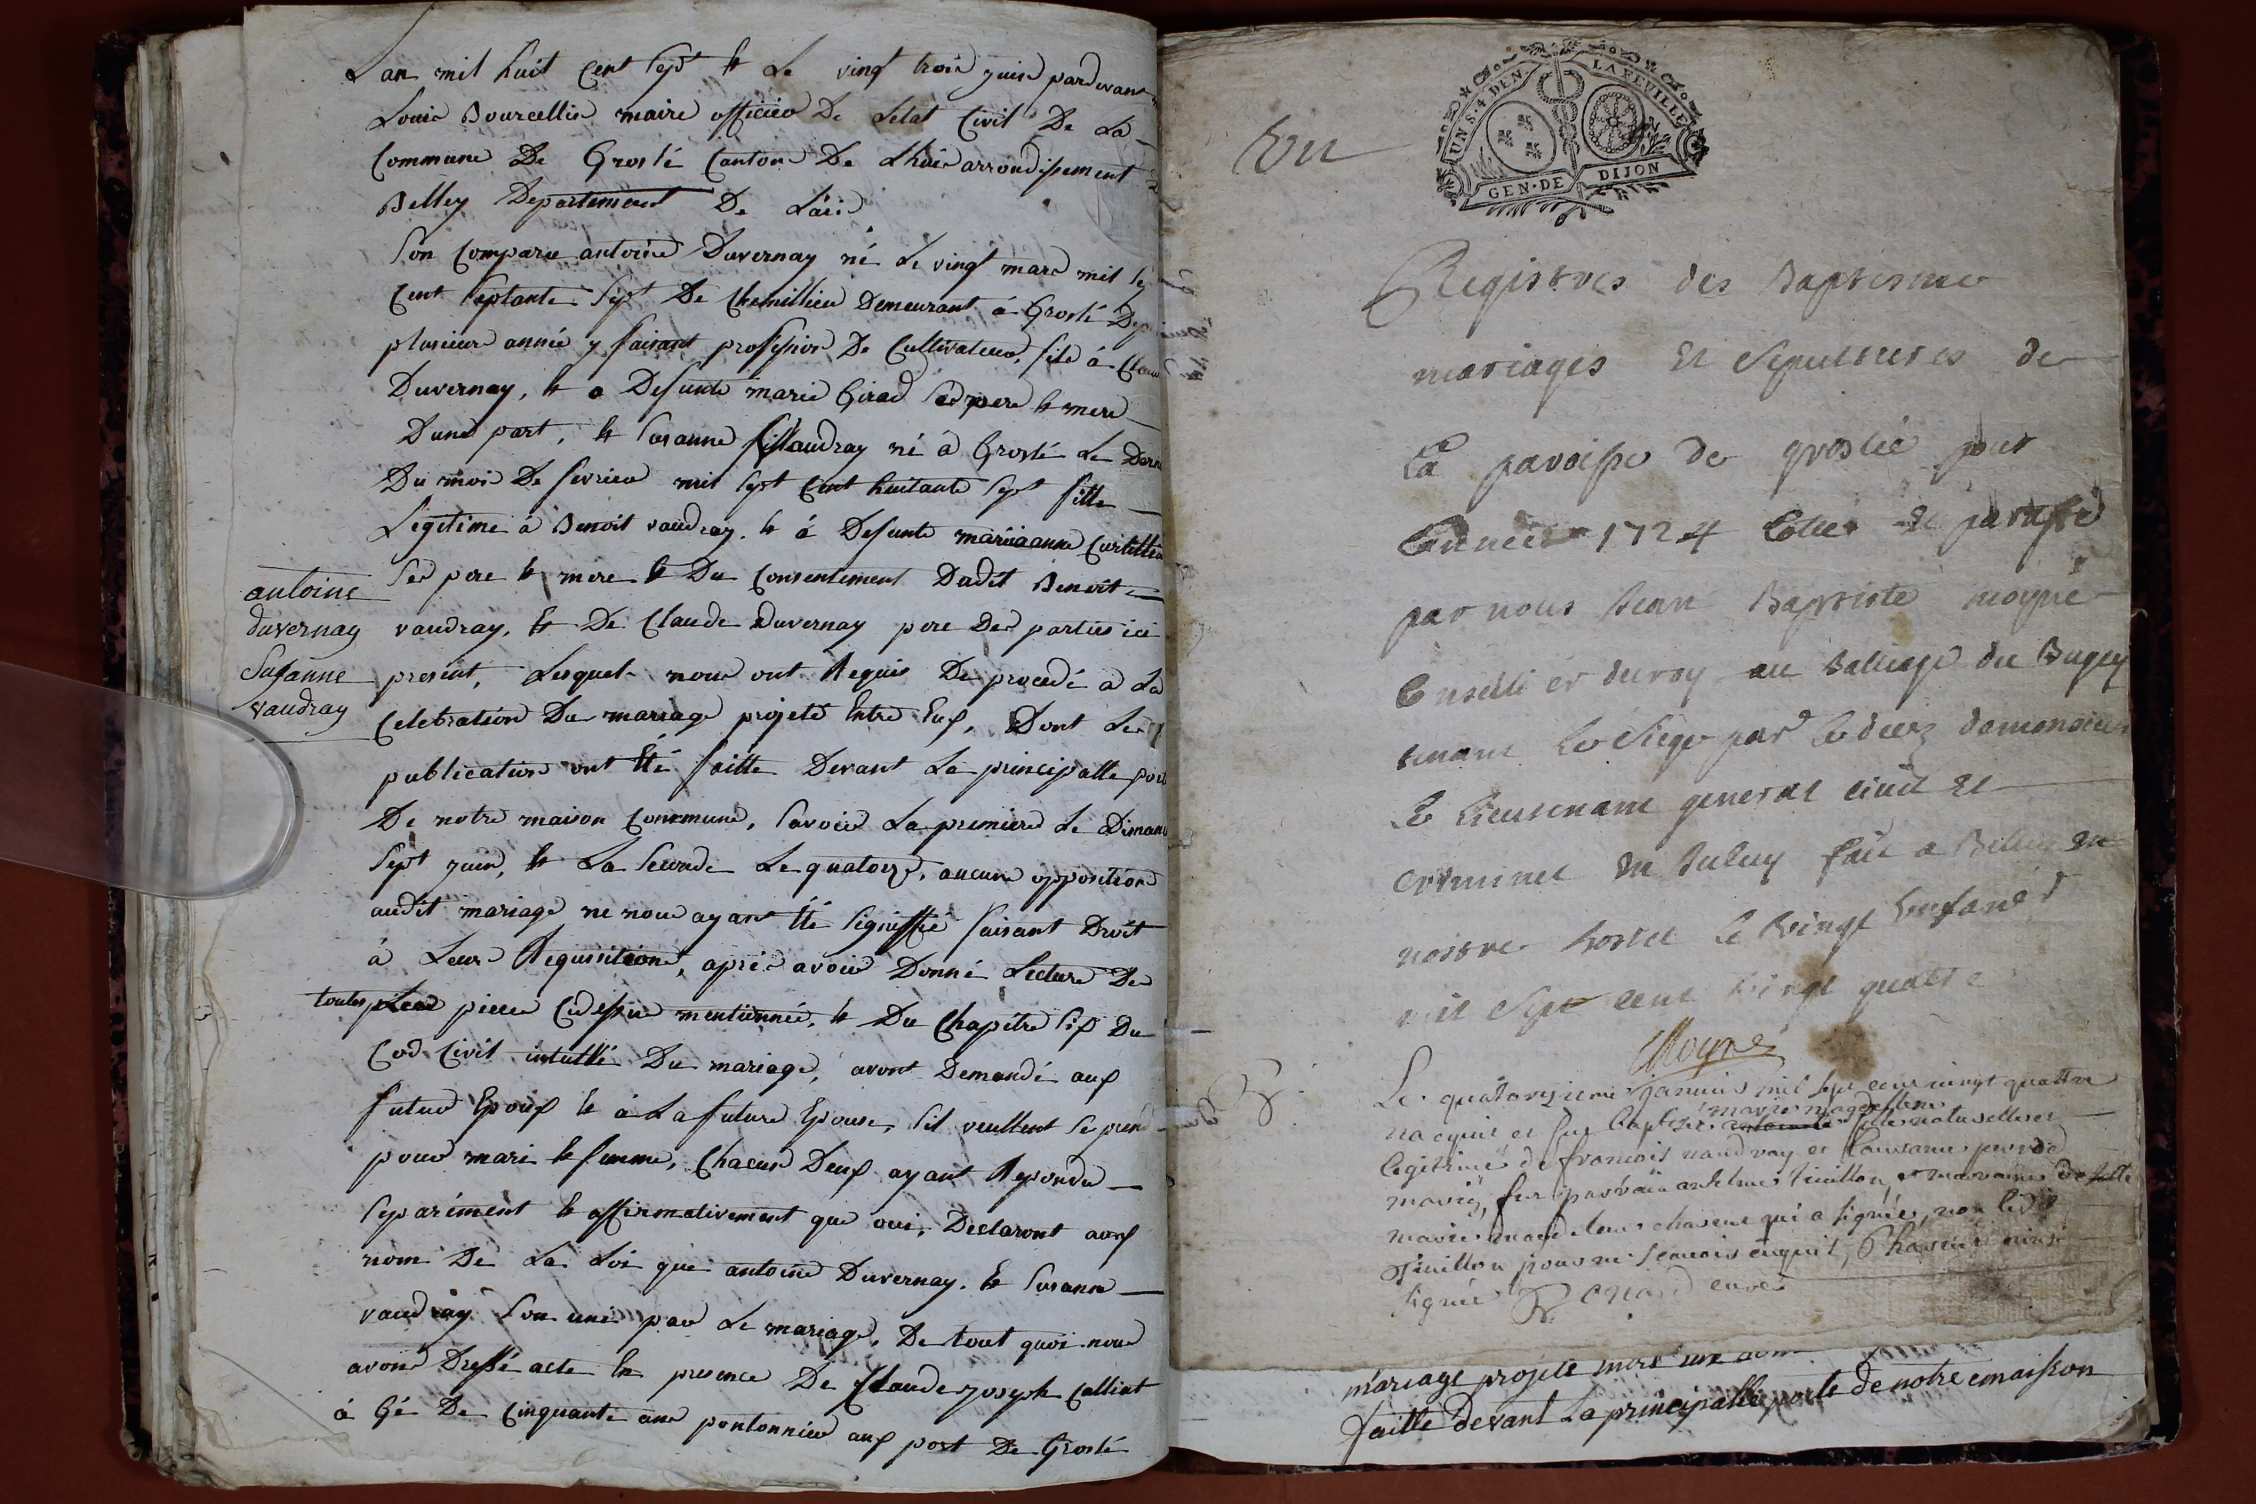 Lan mil huit Cent Sept & Le vingt trois juin pardevant
Louis Bourcellin maire officier De Letat Civil De La
Commune De Groslé Canton De Lhuis arrondissement
Belley Departement De Lain
Son Comparu antoine Duvernay né Le vingt mars mil Sept
Cent Septante Sept De Chemillieu Demeurant á Groslé Depuis
plusieur année y faisant profession De Cultivateur, fils á Claude
Duvernay, & a Defunte marie Girad Ses pere & mere
Dune part, & Susanne Vaudray né á Groslé Le Dern
Du mois De fevrier mil Sept Cent huitante Sept fille
Legitime á Benoit vaudray. & á Defunte mariaanne Curtillier
antoine
duvernay
Susanne
vaudray
Ses pere & mere & Du Consentement Dudit Benoit
vaudray, & De Claude Duvernay pere Des parties ici
present, Lesquels nous ont Requis De procedé a La
Celebration Du mariage projeté Entre Eux, Dont Les
publications ont Eté faitte Devant La principalle porte
De notre maison Commune, Savoir La premiere Le Dimanche
Sept juin, & La Seconde Le quatorze, aucune opposition
audit mariage ne nous ayant Eté Signiffié faisant Droit
á Leur Requisitione, aprés avoir Donné Lecture De
toutes piece Cidessus mentionnée, & Du Chapitre Six Du
Cod Civil intullé Du mariage, avont Demandé aux
futur Epoux & á La future Epouse, Sil veullent Se prend
pour mari & femme, Chacun Deux ayant Repondu
Separément & affirmativement que oui, Declaront aux
nom De La Loi que antoine Duvernay. & Susanne
vaudray Son uni par Le mariage, De tout quoi nous
avons Dressé acte En presence De Claude joseph Calliat
á Gé De Cinquante ans pontonnier aux port De Groslé
Vu
UN S. 4 DEN. LA FEUILLE
GEN. DE DIJON
Registres des Baptesmes
mariages Et Sepultures de
La paroisse de groslée pour
Lannée 1724 Cotter Et paraffé
par nous Jean Baptiste moyne
Conseiller du roy au Balliage du Bugey
tenant Le Siege par de monsieur
Le Lieutenant general civil Et
criminel fait a Belley En
nostre hostel Le vingt
mil Sept cent vingt quatre
Moyne
Le quatorzieme janvier mil sept cent vingt quattre
marie magdellene
nacquit et fut baptisée fille naturelle et
legitime de francois vaudray et
mariez, fut parrain anthelme tuillon, et marraine
marie magdelene qui a signée, non ledit
tuillon pour ne scavoir enquit,
signée curé
mariage projeté
faitte devant La principalle porte de notre maison